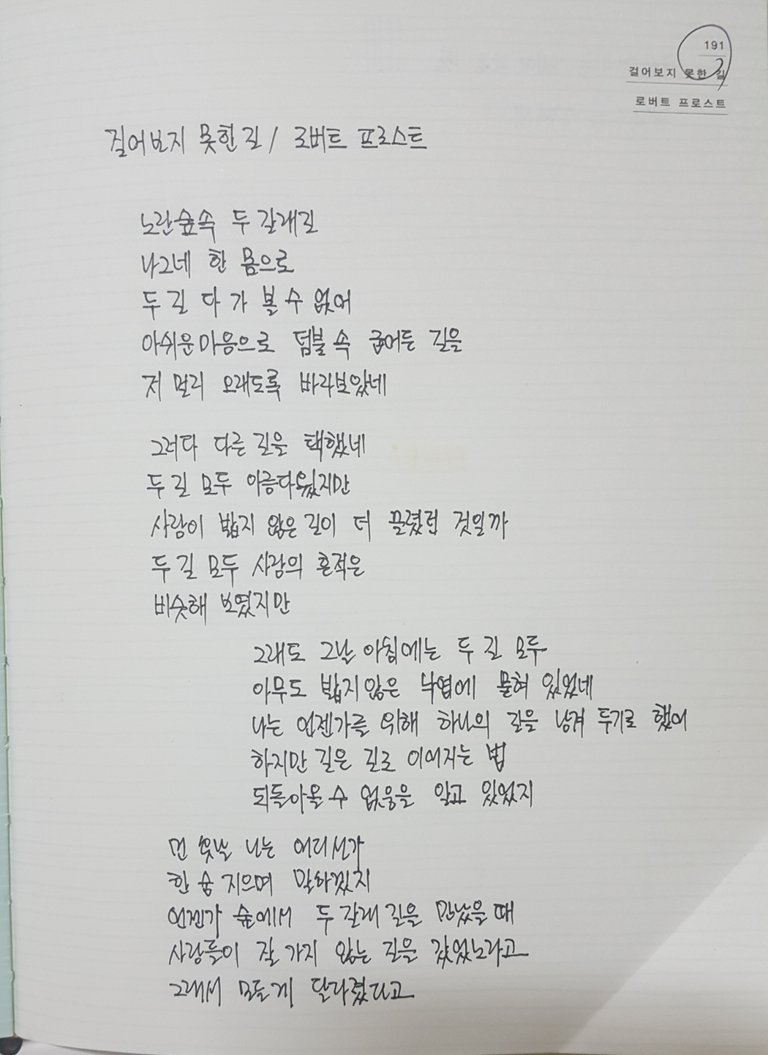 191
걸어보지 못한 길
로버트 프로스트
걸어보지 못한 길 / 로버트 프로스트
노란 숲속 두 갈래길
나그네 한 몸으로
두 길 다 가 볼 수 없어
아쉬운 마음으로 덤불 속 굽어든 길을
저 멀리 오래도록 바라보았네
그러다 다른 길을 택했네
두 길 모두 아름다웠지만
사람이 밟지 않은 길이 더 끌렸던 것일까
두 길 모두 사람의 흔적은
비슷해 보였지만
그래도 그날 아침에는 두 길 모두
아무도 밟지 않은 낙엽에 묻혀 있었네
나는 언젠가를 위해 하나의 길을 남겨 두기로 했어
하지만 길은 길로 이어지는 법
되돌아올 수 없음을 알고 있었지
먼 훗날 나는 어디선가
한숨 지으며 말하겠지
언젠가 숲에서 두 갈래 길을 만났을 때
사람들이 잘 가지 않는 길을 갔었노라고
그래서 모든게 달라졌다고